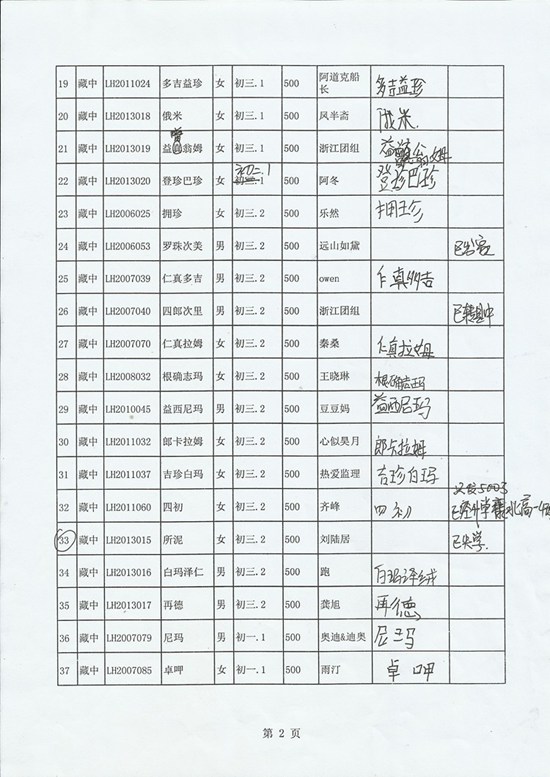 19 藏中 LH2011024 多吉益珍 女 初三.1 500 阿道克船长 多吉益珍
20 藏中 LH2013018 俄米 女 初三.1 500 风半斋 俄米
21 藏中 LH2013019 益翁姆 女 初三.1 500 浙江团组
22 藏中 LH2013020 登珍巴珍 女 初二.1 500 阿冬 登珍巴珍
23 藏中 LH2006025 拥珍 女 初三.2 500 乐然 拥珍
24 藏中 LH2006053 罗珠次美 男 初三.2 500 远山如黛
25 藏中 LH2007039 仁真多吉 男 初三.2 500 owen 仁真多吉
26 藏中 LH2007040 四郎次里 男 初三.2 500 浙江团组
27 藏中 LH2007070 仁真拉姆 女 初三.2 500 秦桑 仁真拉姆
28 藏中 LH2008032 根确志玛 女 初三.2 500 王晓琳 根确志玛
29 藏中 LH2010045 益西尼玛 男 初三.2 500 豆豆妈 益西尼玛
30 藏中 LH2011032 郎卡拉姆 女 初三.2 500 心似昊月 郎卡拉姆
31 藏中 LH2011037 吉珍白玛 女 初三.2 500 热爱监理 吉珍白玛
32 藏中 LH2011060 四初 女 初三.2 500 齐峰 四初
33 藏中 LH2013015 所泥 女 初三.2 500 刘陆居 已失学.
34 藏中 LH2013016 白玛泽仁 男 初三.2 500 跑 白玛泽绒
35 藏中 LH2013017 再德 男 初三.2 500 龚旭 再德
36 藏中 LH2007079 尼玛 男 初一.1 500 奥迪&迪奥 尼玛
37 藏中 LH2007085 卓呷 女 初一.1 500 雨汀 卓呷
第 2 页